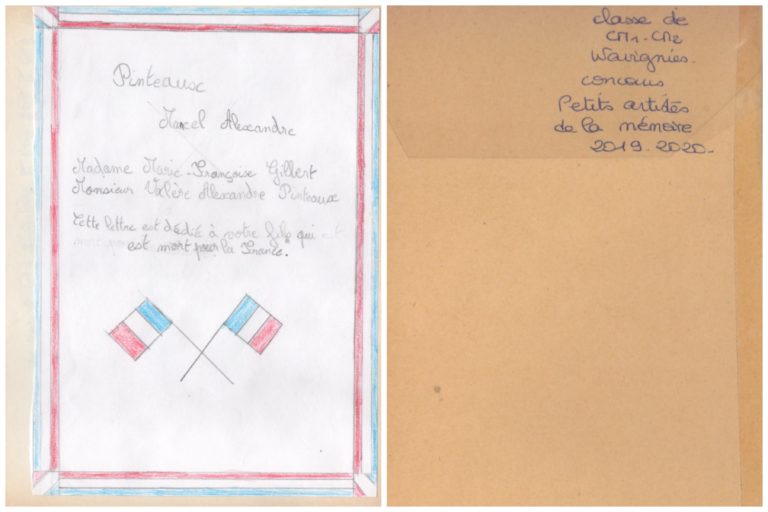 Pinteaux
Marcel Alexandre
Madame Marie-Françoise Gilbert
Monsieur Valère Alexandre Pinteaux
Cette lettre est dédié à votre fils qui
est mort pour la France.
classe de
CM1-CM2
Wavignies.
concours
Petits artistes
de la mémoire
2019-2020-